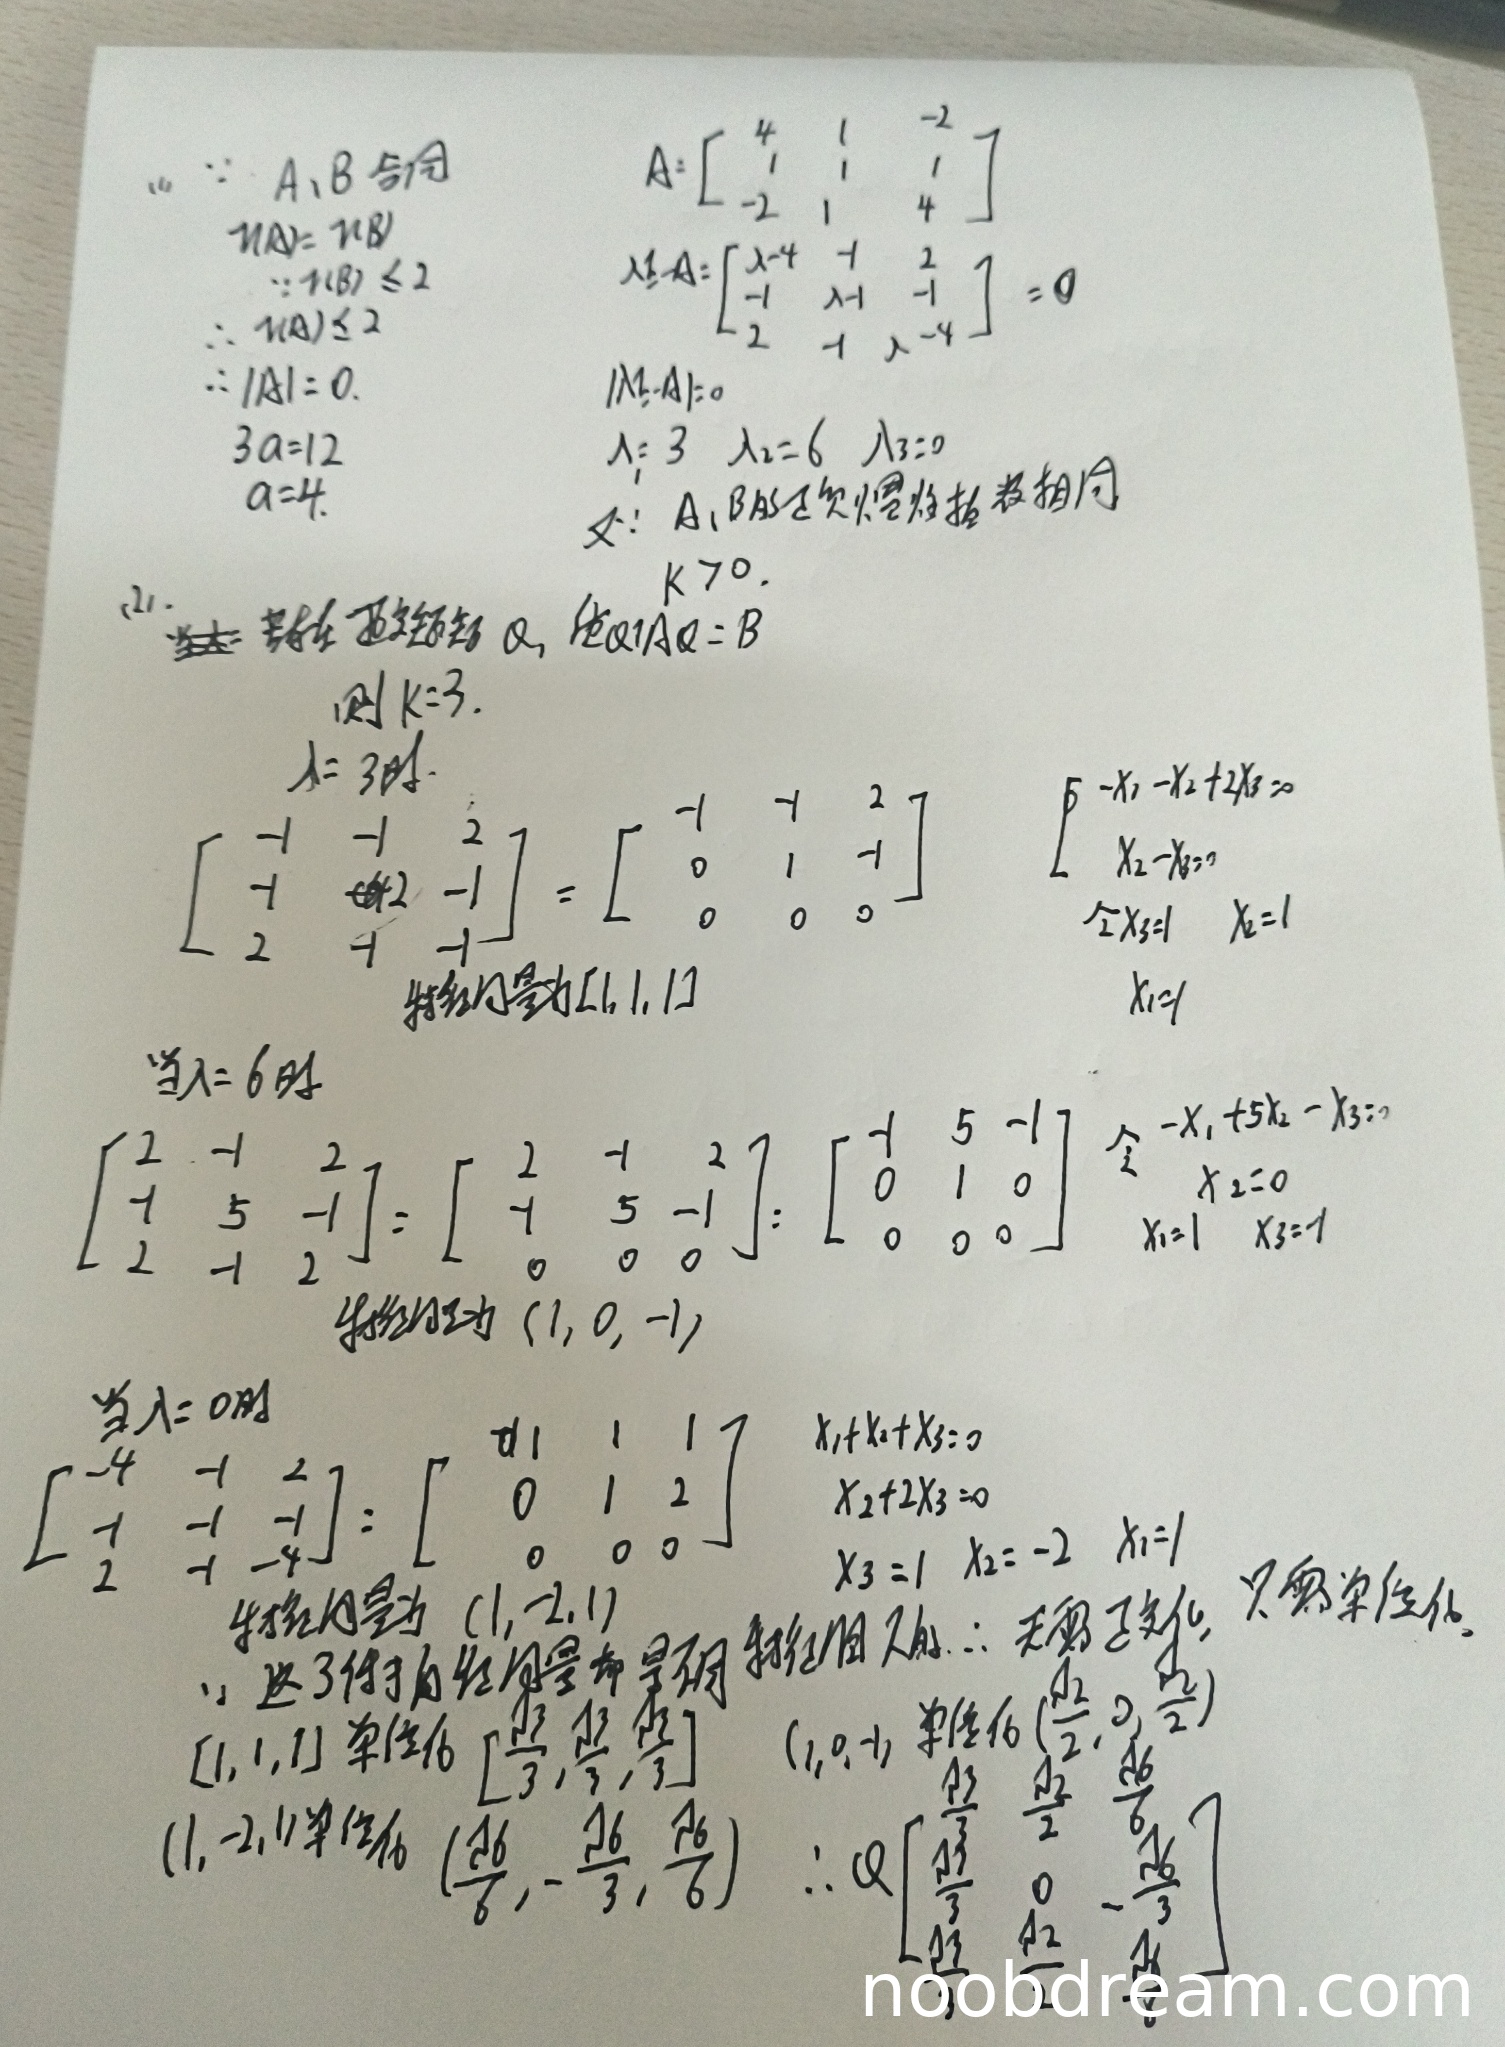 (1) ∵ A、B合同
r(A)=r(B)
∵r(B)≤2
∴ r(A)≤2
∴|A|=0.
3a=12
a=4.
A=[4 1 -2
1 1 1
-2 1 4]
λE-A=[λ-4 -1 2
-1 λ-1 -1
2 -1 λ-4] =0
|λE-A|=0
λ₁=3 λ₂=6 λ₃=0
又∵ A、B的正负惯性指数相同
K>0.
(2).
若存在正交矩阵Q,使QᵀAQ=B
则K=3.
λ=3时.
[-1 -1 2
-1 2 -1
2 -1 -1] = [-1 -1 2
0 1 -1
0 0 0]
-x₁-x₂+2x₃=0
x₂-x₃=0
令x₃=1 x₂=1
x₁=1
特征向量为[1,1,1]
当λ=6时
[2 -1 2
-1 5 -1
2 -1 2] = [2 -1 2
-1 5 -1
0 0 0] = [-1 5 -1
0 1 0
0 0 0]
令 -x₁+5x₂-x₃=0
x₂=0
x₁=1 x₃=-1
特征向量为 (1,0,-1)
当λ=0时
[-4 -1 2
-1 -1 -1
2 -1 -4] = [1 1 1
0 1 2
0 0 0]
x₁+x₂+x₃=0
x₂+2x₃=0
x₃=1 x₂=-2 x₁=1
特征向量为 (1,-2,1)
∵ 这3个特征向量都是不同特征值的∴无需正交化,只需单位化。
[1,1,1]单位化[√3/3,√3/3,√3/3]
(1,0,-1)单位化(√2/2,0,√2/2)
(1,-2,1)单位化(√6/6,-√6/3,√6/6)
∴Q[√3/3 √2/2 √6/6
√3/3 0 -√6/3
√3/3 √2/2 √6/6]
noobdream.com